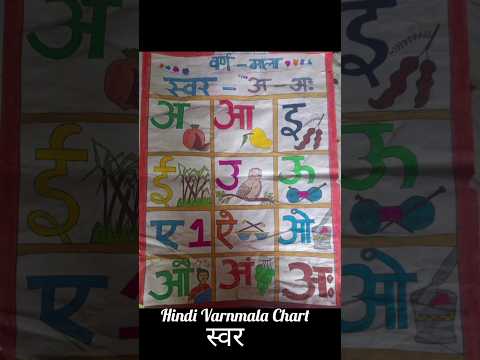 वर्ण - माला
स्वर - अ - अः
अ आ इ
ई उ ऊ
ए 1 ऐ ओ
औ अं अः
Hindi Varnmala Chart
स्वर